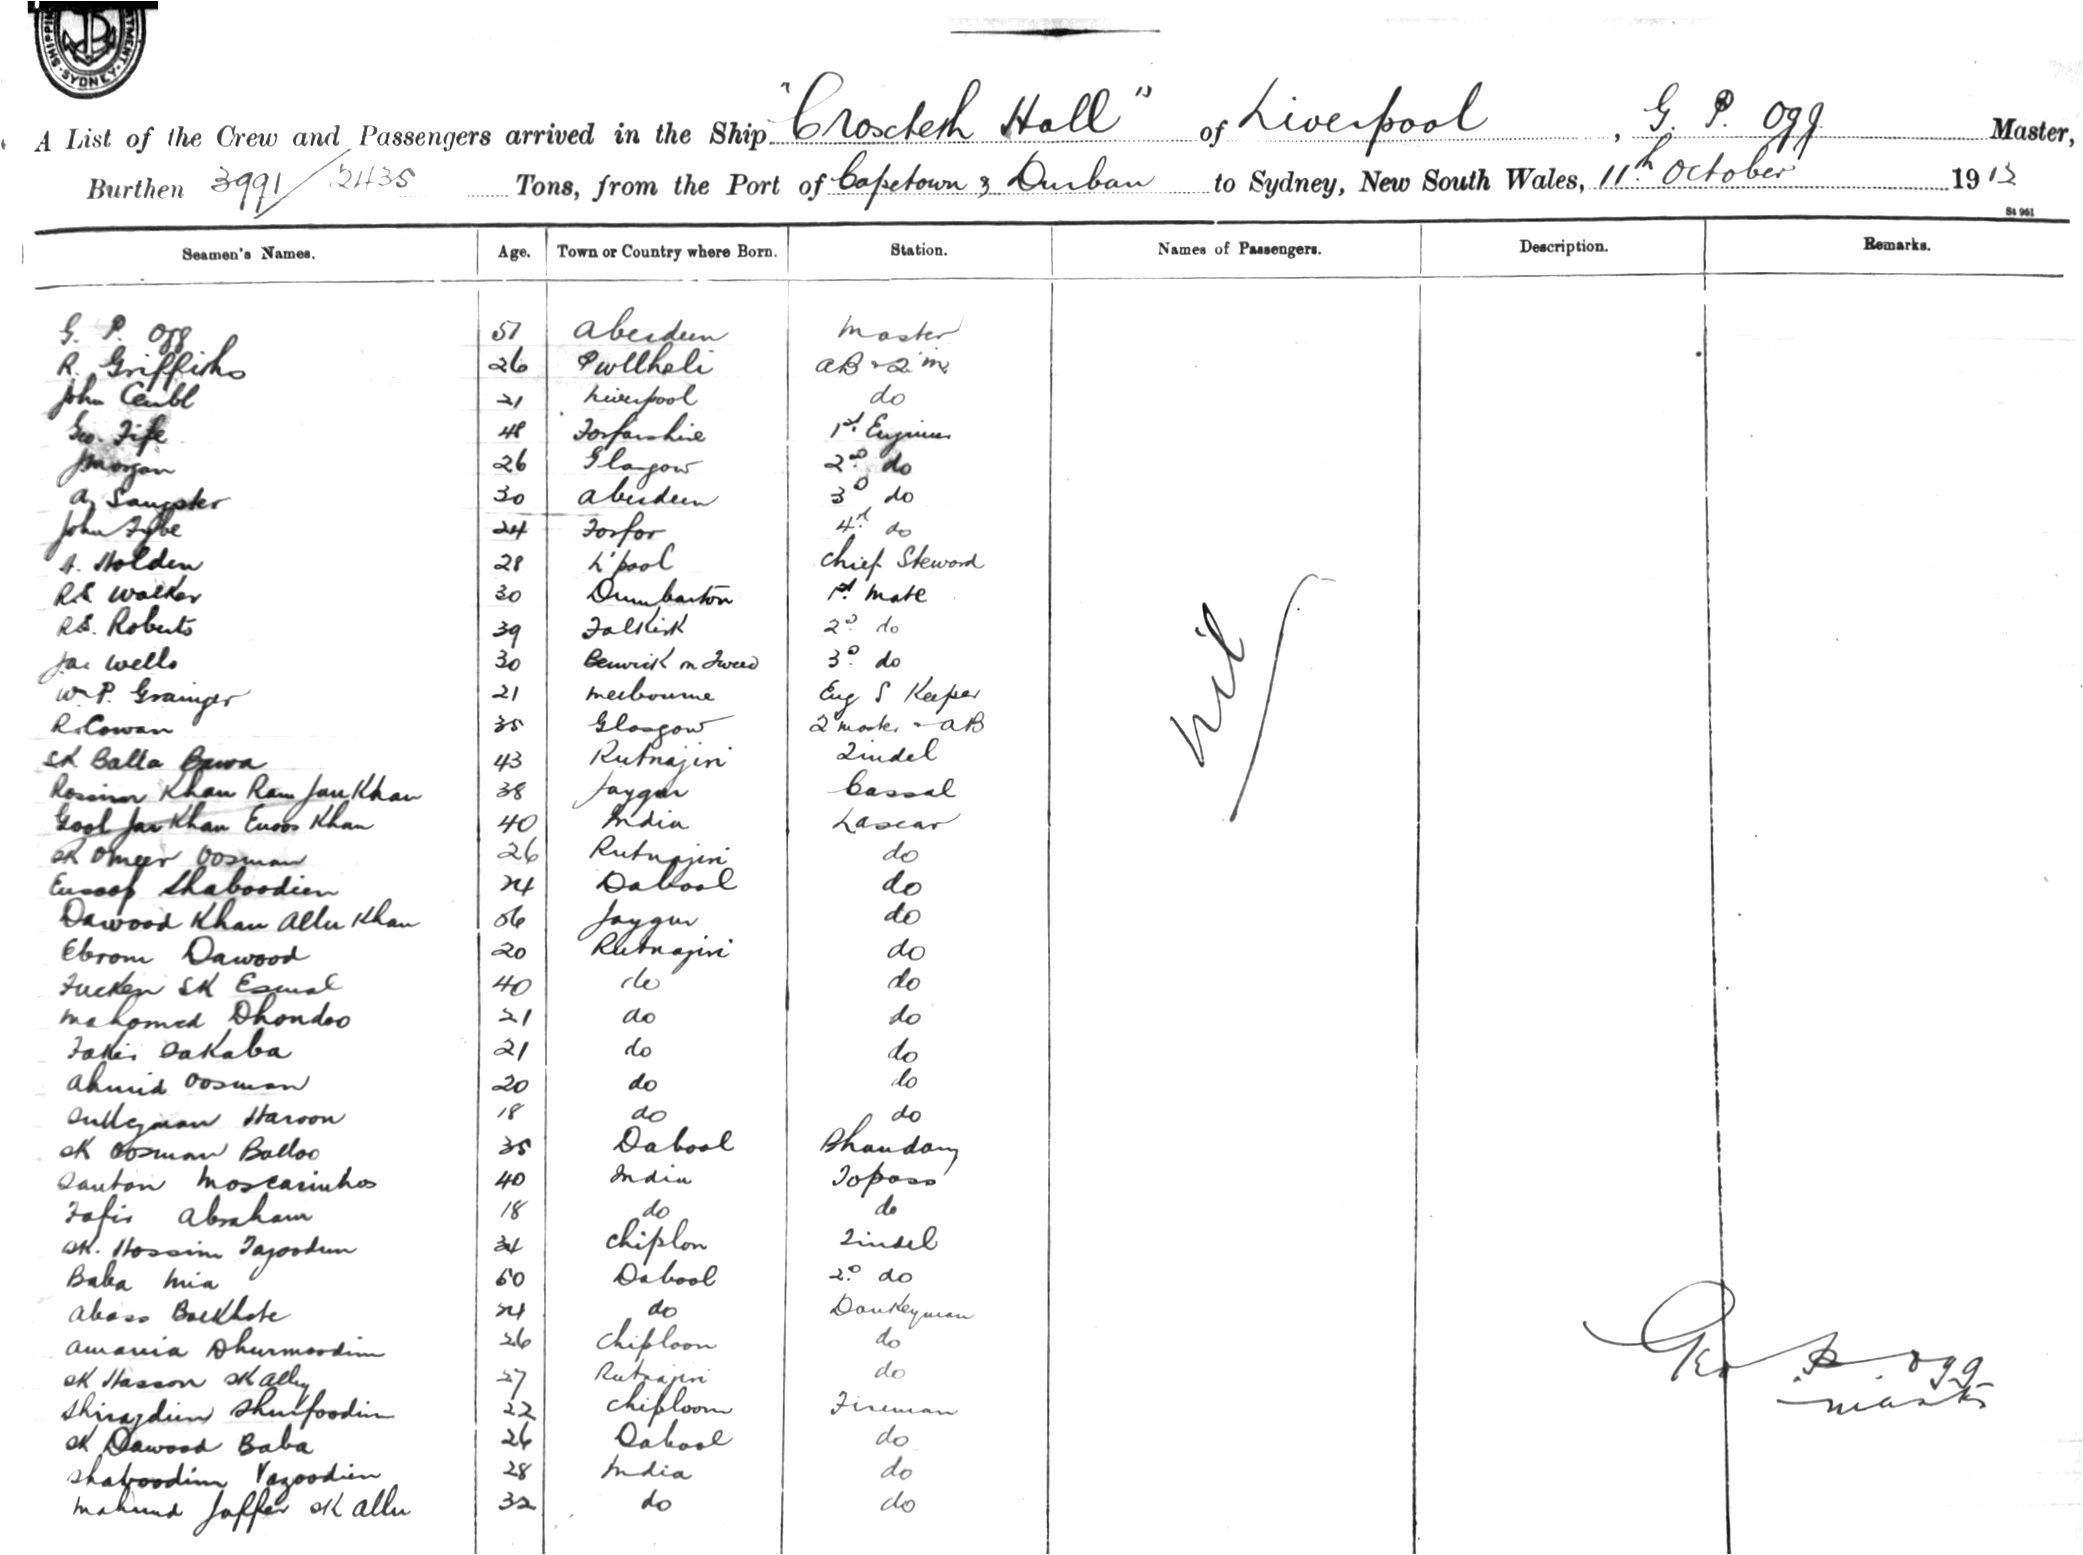 SHIPPI MENT SYDNEY
A List of the Crew and Passengers arrived in the Ship "Croxteth Hall" of Liverpool, G. P. Ogg Master,
Burthen 3991/2435 Tons, from the Port of Capetown & Durban to Sydney, New South Wales, 11th October 1913
St 961
Seamen's Names. Age. Town or Country where Born. Station. Names of Passengers. Description. Remarks.
G. P. Ogg 51 Aberdeen Master
R. Griffiths 26 Pwllheli AB & 2 m
John 21 Liverpool do
Geo. Fife 48 Forfarshire 1st Engineer
J Morgan 26 Glasgow 2nd do
A Sangster 30 Aberdeen 3d do
John Fyfe 24 Forfar 4th do
A. Holden 28 L'pool Chief Steward
R.S. Walker 30 Dumbarton 1st Mate
R.S. Roberts 39 Falkirk 2d do
Jas Wells 30 Berwick on Tweed 3d do
Wm P. Grainger 21 Melbourne Eng S Keeper
R. Cowan 35 Glasgow 2 master & AB
SK Balla Bawa 43 Rutnajiri Tindel
Khan Ram Jan Khan 38 Jaygur Cassal
Gool Jar Khan Euoos Khan 40 India Lascar
SK Omeer Oosman 26 Rutnajiri do
Eusoop Shaboodien 24 Dabool do
Dawood Khan Allu Khan 56 Jaygur do
Ebrom Dawood 20 Rutnajiri do
SK Esmal 40 do do
Mahomed Dhondoo 21 do do
Fakir Sakaba 21 do do
Ahmid Oosman 20 do do
Sulleyman Haroon 18 do do
SK Oosman Balloo 35 Dabool Bhandary
Santon Moscarinhos 40 India Topass
Abraham 18 do do
SK. Hossim Tajoodun 34 Chiplon Tindel
Baba Mia 50 Dabool 2d do
Abass 24 do Donkeyman
Amania Dhurmoodin 26 Chiploon do
SK Hassan SK Ally 27 Rutnajiri do
Shirajdien Shurfoodin 22 Chiploon Fireman
SK Dawood Baba 26 Dabool do
Shaboodim Vazoodien 28 India do
Mahmud Jaffer SK Allu 32 do do
nil
Geo P Ogg
Master